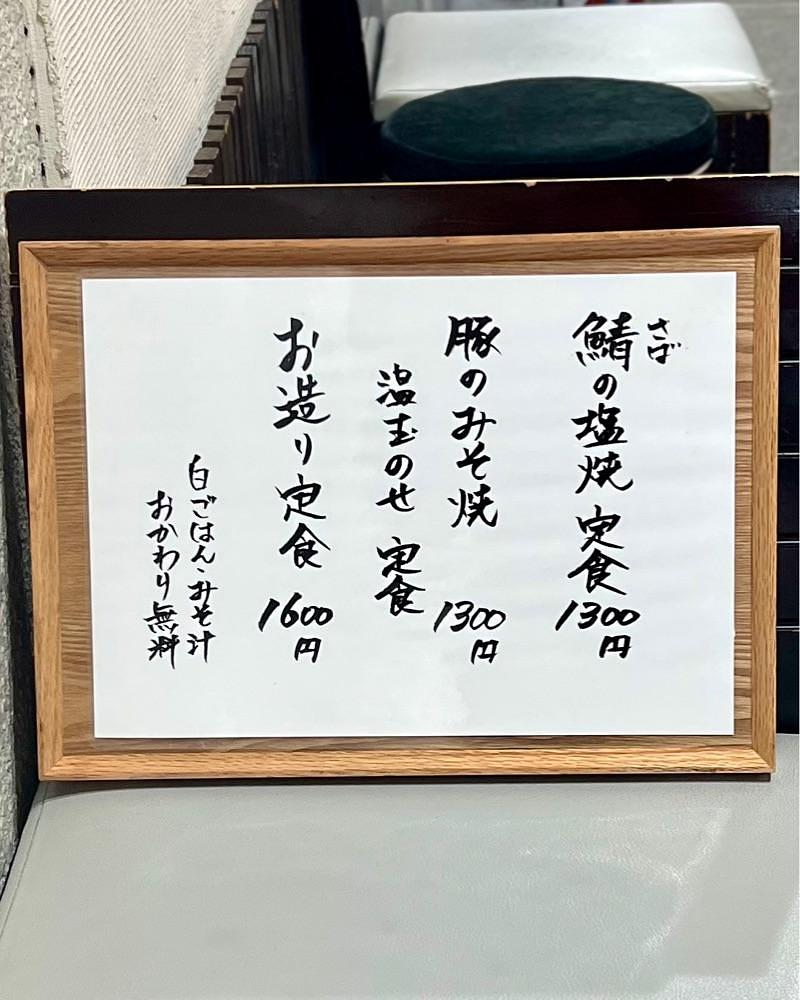 さば
鯖の塩焼定食 1300円
豚のみそ焼 1300円
温玉のせ 定食
お造り定食 1600円
白ごはん・みそ汁
おかわり無料